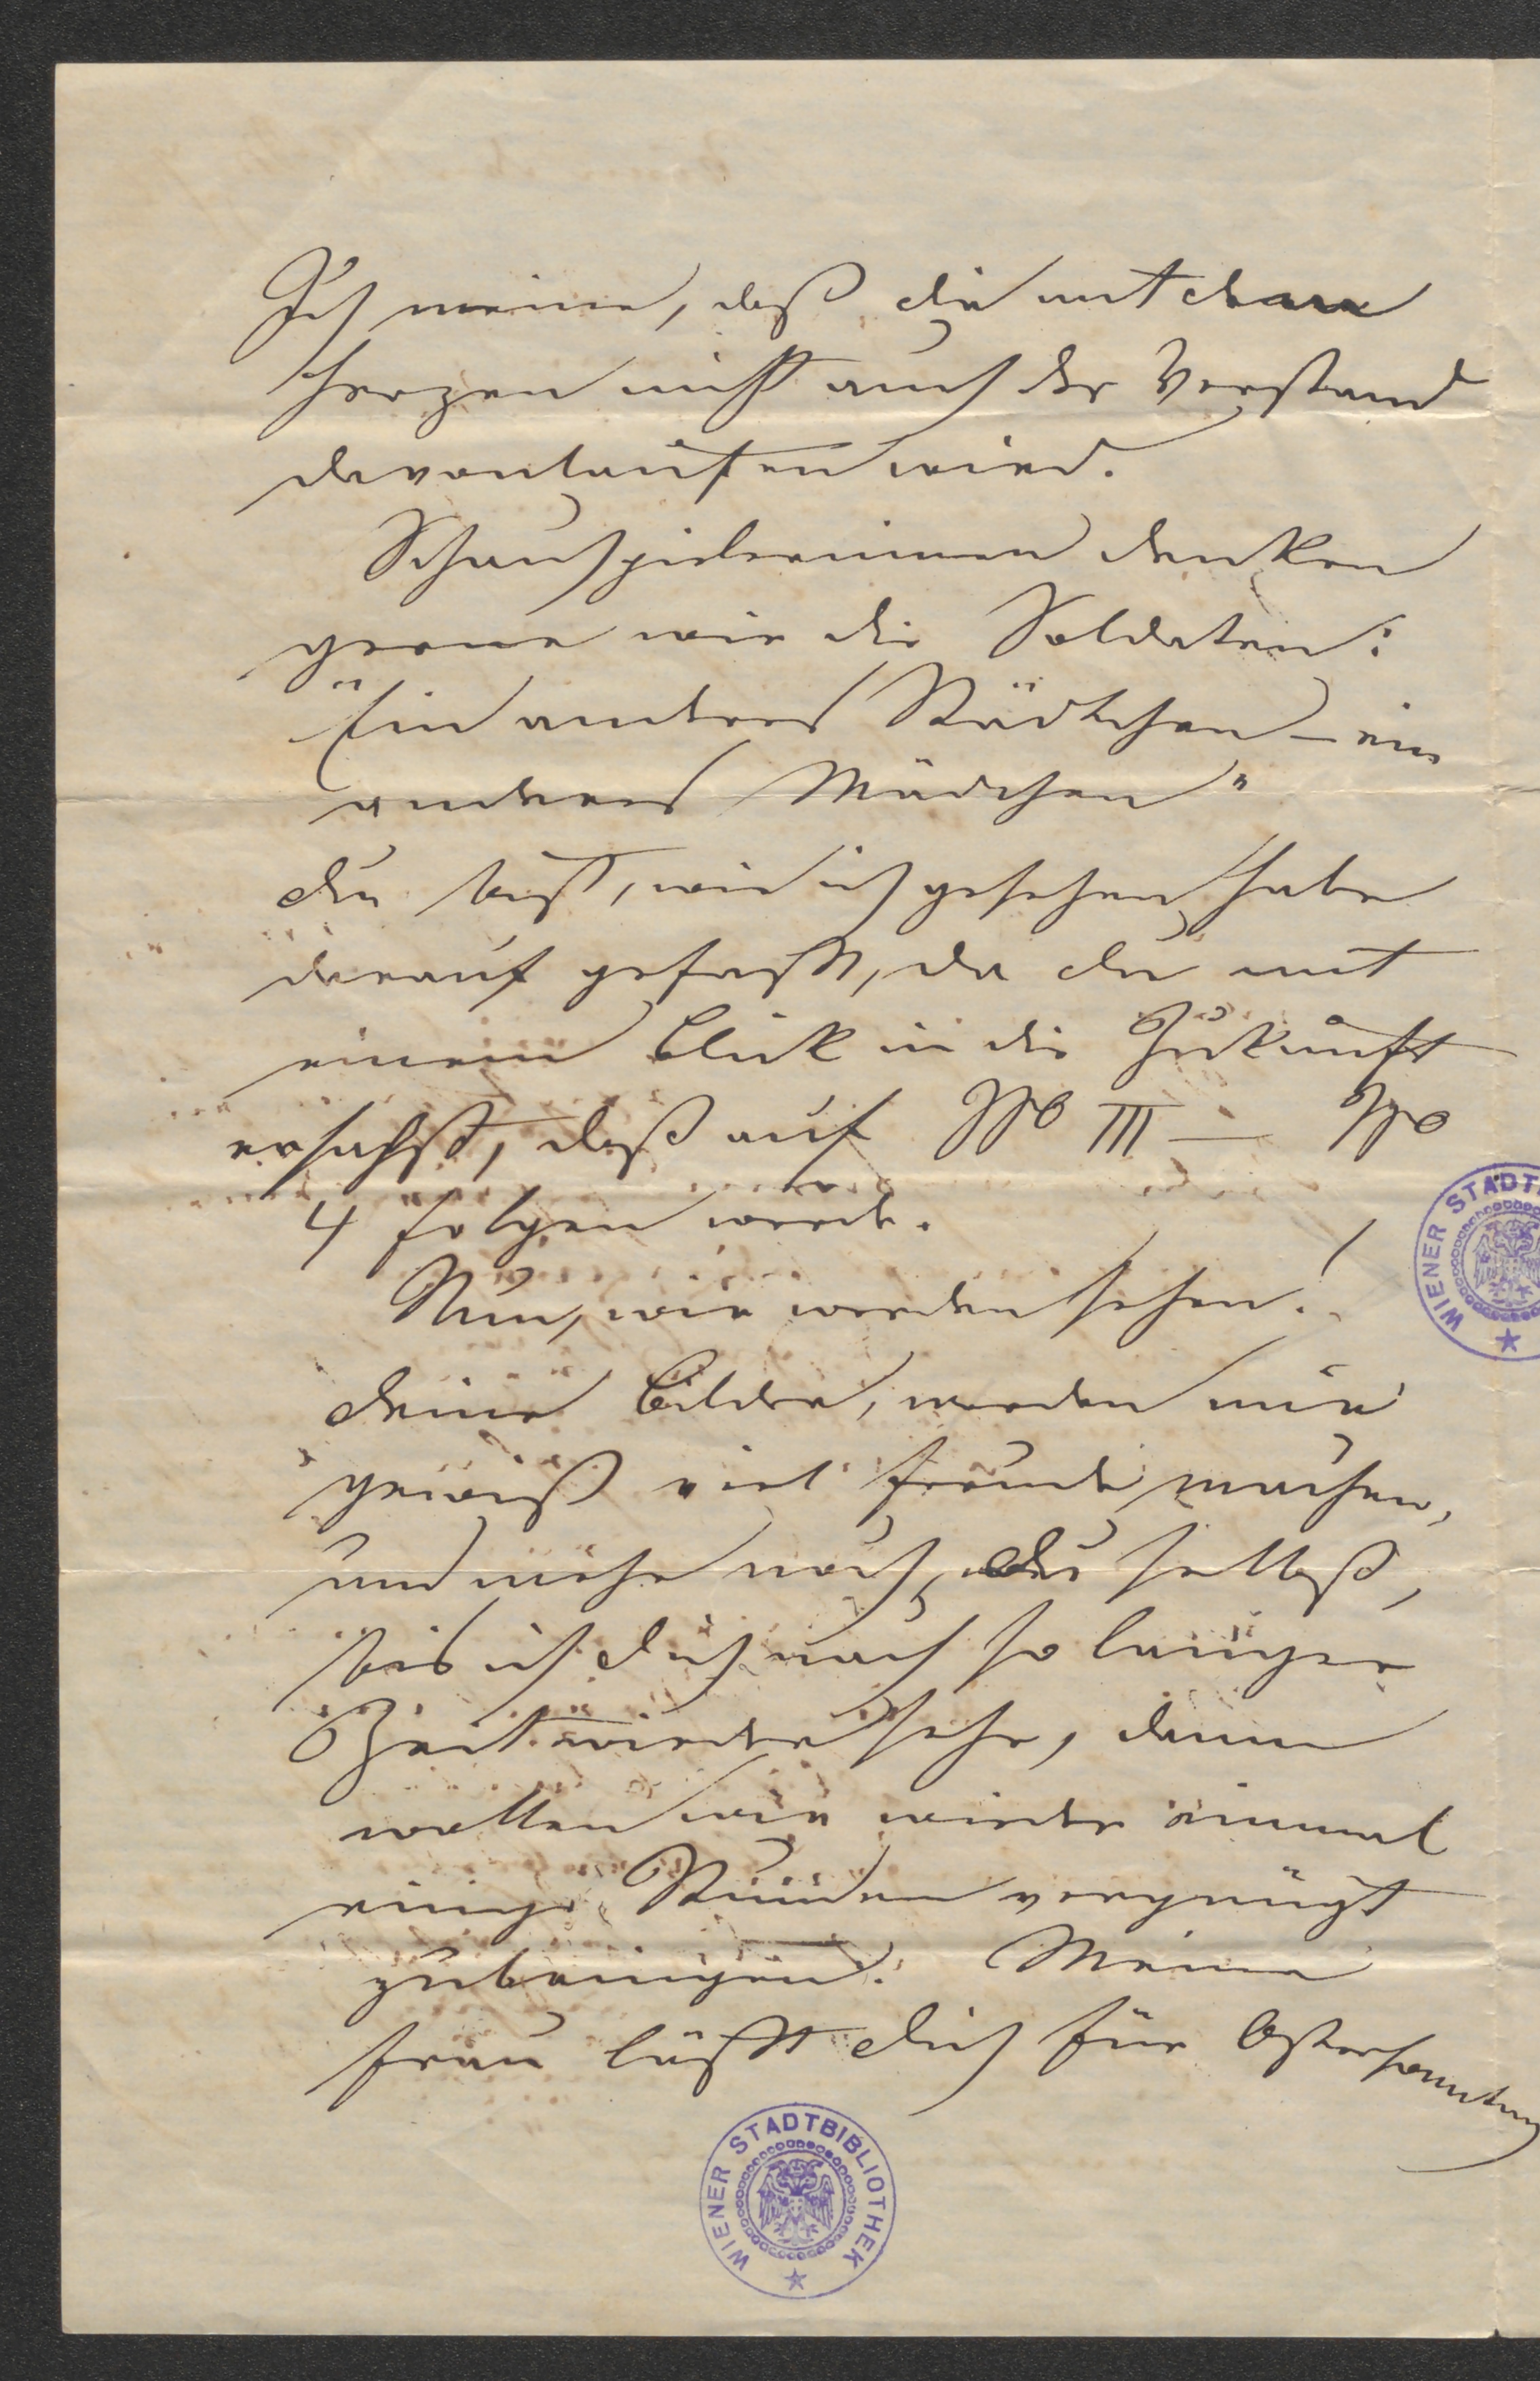 Ich meine, daß dir mit dem
Herzen nicht auch der Verstand
davonlaufen wird.
Schauspielerinnen denken
gerne wie die Soldaten:
"Ein anderes Städtchen – ein
anderes Mädchen"
du bist, wie ich gesehen habe
darauf gefaßt, da du mit
einem Blick in die Zukunft
ersahst, daß auf No III – No
4 folgen werde.
Nun, wir werden sehen!
deine Bilder, werden mir
gewiß viel Freude machen,
und mehr noch, du selbst,
bis ich dich nach so langer
Zeit wiedersehe, dann
wollen wir wieder einmal
einige Stunden vergnügt
zubringen. Meine
Frau läßt dich für Ostersonntag
WIENER STADTBIBLIOTHEK
WIENER STADT